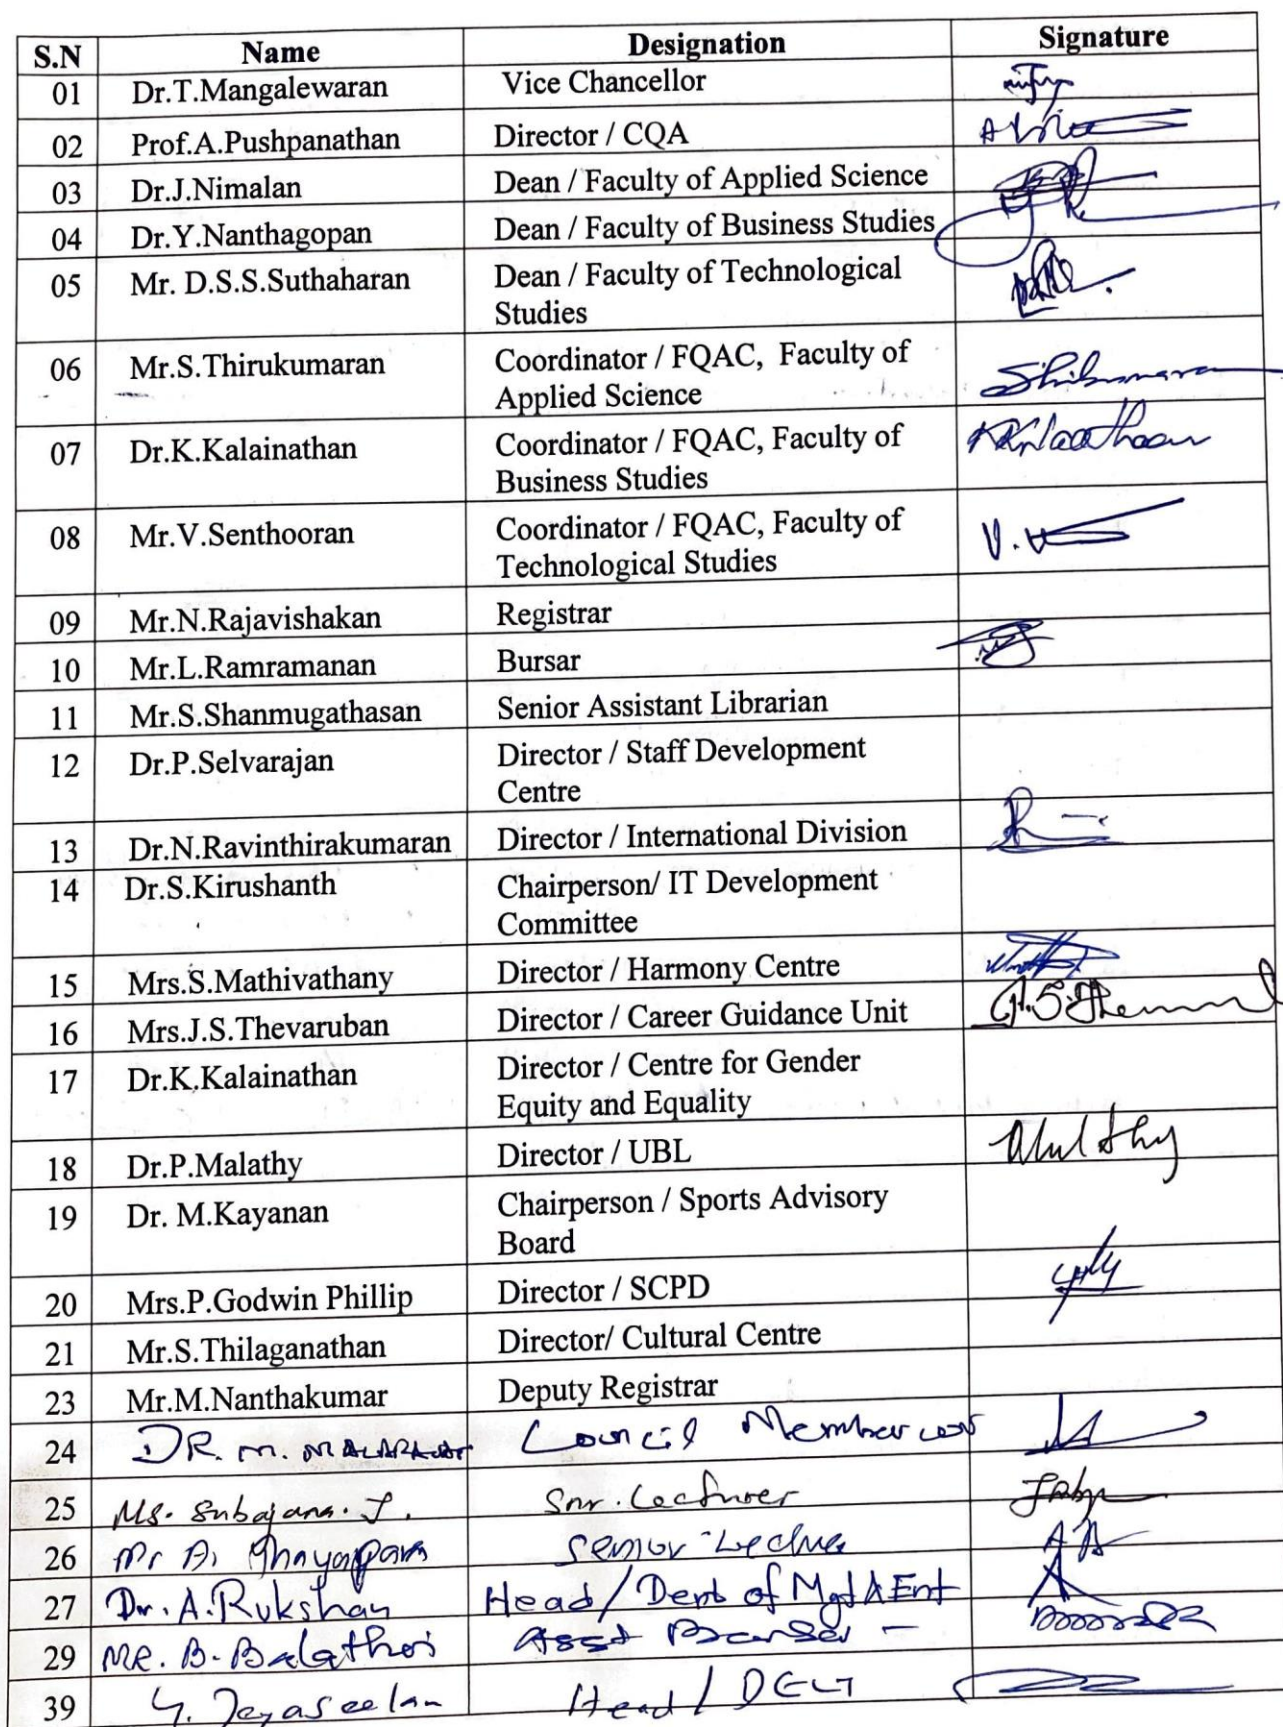 S.N Name Designation Signature
01 Dr.T.Mangalewaran Vice Chancellor
02 Prof.A.Pushpanathan Director / CQA
03 Dr.J.Nimalan Dean / Faculty of Applied Science
04 Dr.Y.Nanthagopan Dean / Faculty of Business Studies
05 Mr. D.S.S.Suthaharan Dean / Faculty of Technological
Studies
06 Mr.S.Thirukumaran Coordinator / FQAC, Faculty of
Applied Science
07 Dr.K.Kalainathan Coordinator / FQAC, Faculty of
Business Studies
08 Mr.V.Senthooran Coordinator / FQAC, Faculty of
Technological Studies
09 Mr.N.Rajavishakan Registrar
10 Mr.L.Ramramanan Bursar
11 Mr.S.Shanmugathasan Senior Assistant Librarian
12 Dr.P.Selvarajan Director / Staff Development
Centre
13 Dr.N.Ravinthirakumaran Director / International Division
14 Dr.S.Kirushanth Chairperson/ IT Development
Committee
15 Mrs.S.Mathivathany Director / Harmony Centre
16 Mrs.J.S.Thevaruban Director / Career Guidance Unit
17 Dr.K.Kalainathan Director / Centre for Gender
Equity and Equality
18 Dr.P.Malathy Director / UBL
19 Dr. M.Kayanan Chairperson / Sports Advisory
Board
20 Mrs.P.Godwin Phillip Director / SCPD
21 Mr.S.Thilaganathan Director/ Cultural Centre
23 Mr.M.Nanthakumar Deputy Registrar
24 DR. M. Council Member
25 Ms. Subajana. J. Snr. Lecturer
26 Mr A. Senior
27 Dr. A. Rukshan Head/Dept of Mgt & Ent
29 MR. B. Asst
39 Y. Jeyaseelan Head / DELT